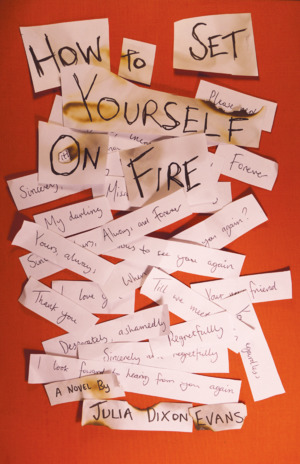 How to Set
Yourself
On Fire
Please
Forever
Sincerely
My darling
Always, and forever
you again?
Yours, always,
to see you again
I love
Till we meet
Your friend
Thank you
Desperately, ashamedly
Regretfully
regardless,
Sincerely regretfully
I look forward to hearing from you again
A Novel By
Julia Dixon Evans